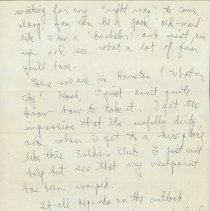 waiting for any "right man" to come
along, you can be a good "old-maid"
like I am a "bachelor" and just join
up and see what a lot of fun
you'll have.
Here we are in Houston ("What a
city"). Gosh, I just don't quite
know how to take it. I get the
impression that its awfully dirty,
and when I get to a nice place
like this Soldiers Club I just can't
help but see that my viewpoint
has been warped.
It all depends on the outlook